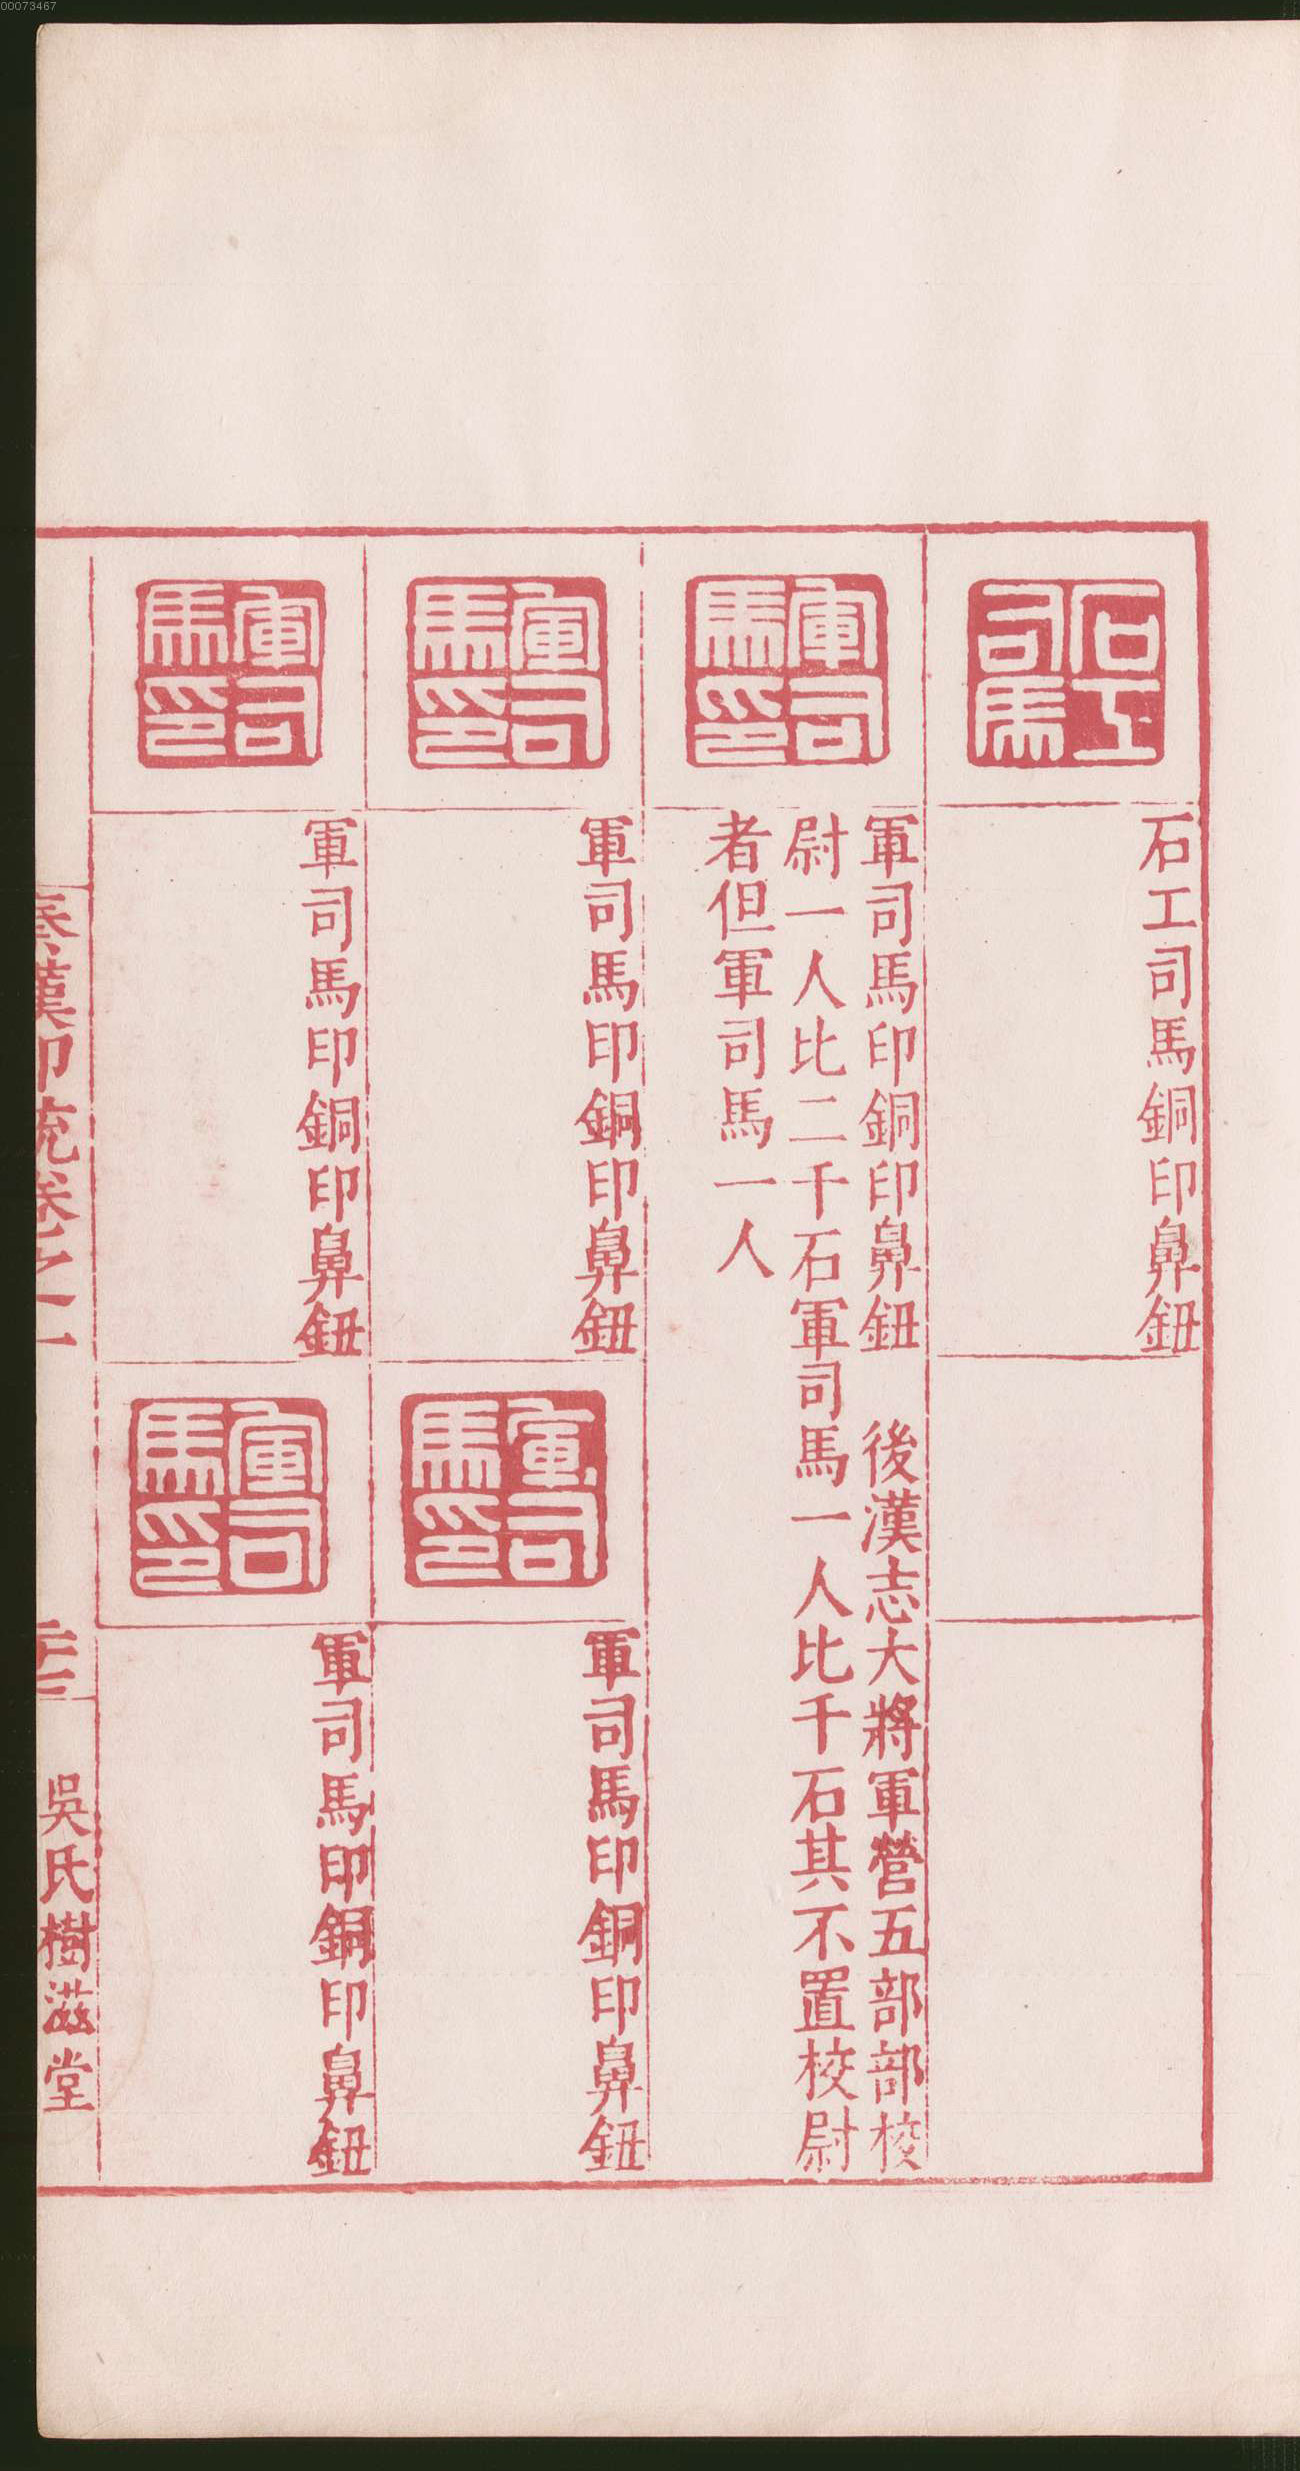 00073467
石工
司馬
石工司馬銅印鼻鈕
軍司
馬印
軍司馬印銅印鼻鈕　後漢志大將軍營五部部校
尉一人比二千石軍司馬一人比千石其不置校尉
者但軍司馬一人
軍司
馬印
軍司馬印銅印鼻鈕
軍司
馬印
軍司馬印銅印鼻鈕
軍司
馬印
軍司馬印銅印鼻鈕
軍司
馬印
軍司馬印銅印鼻鈕
秦漢印統卷之一
吳氏樹滋堂